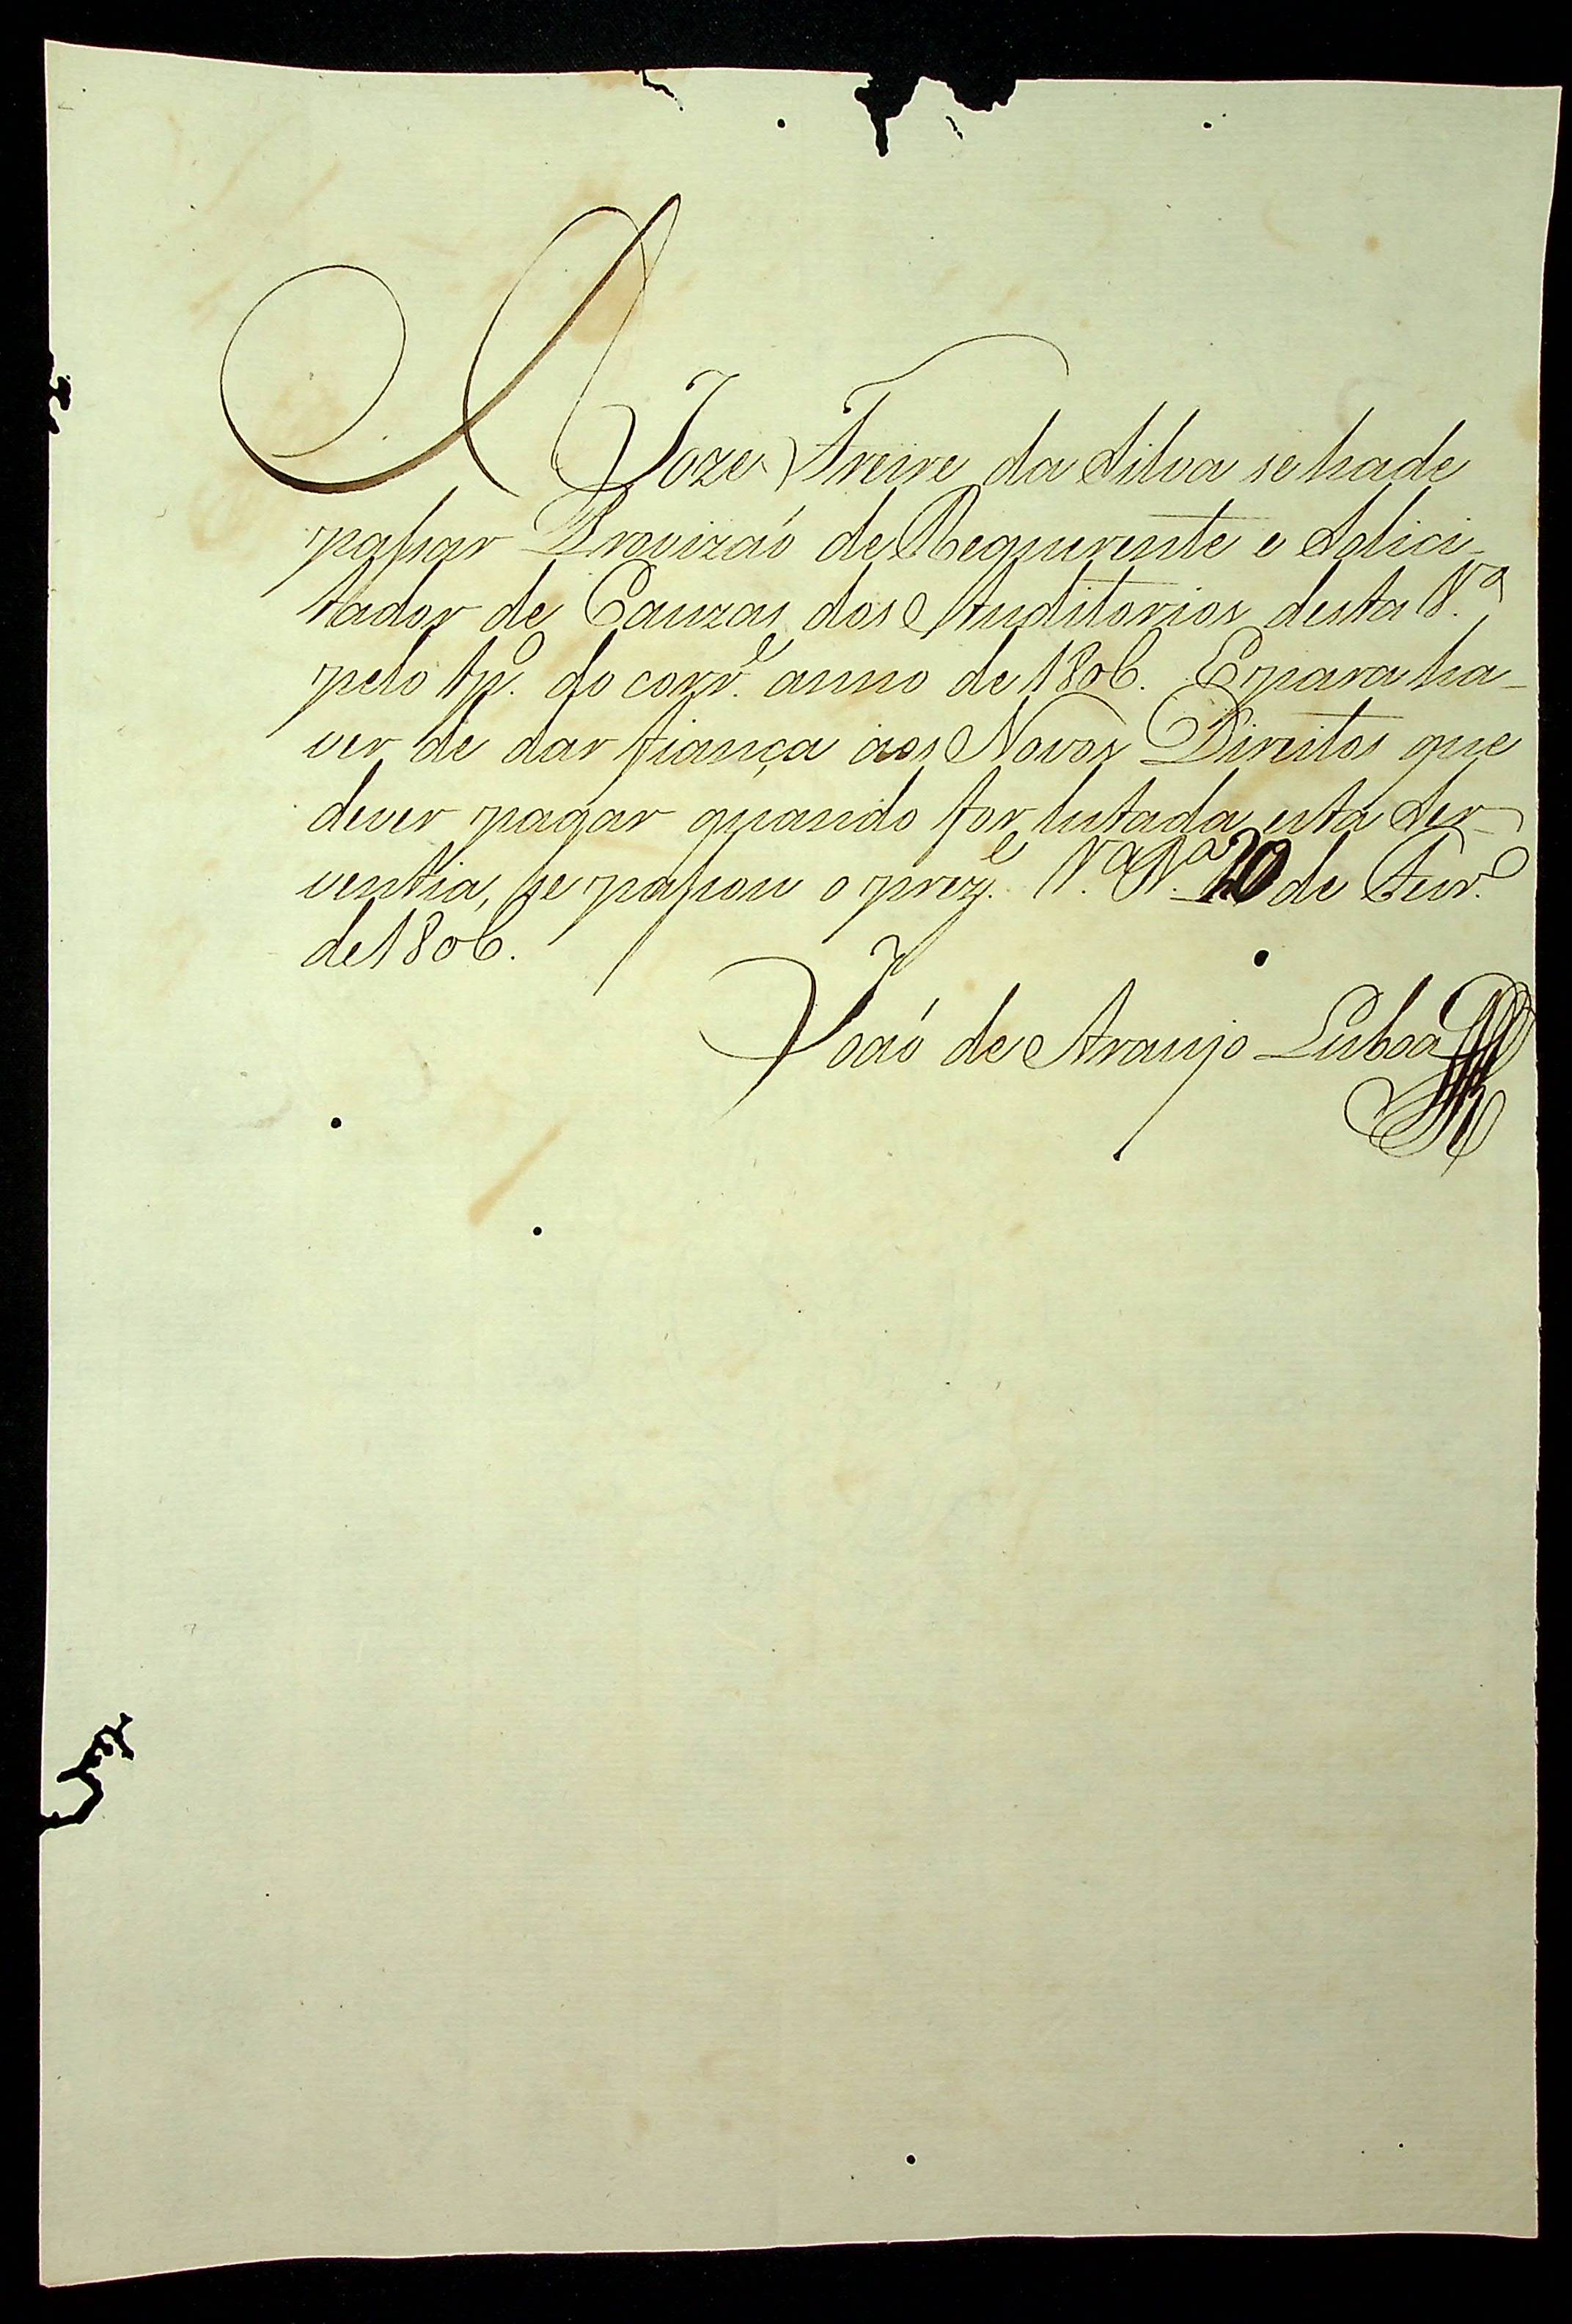 A Joze Freire da Silva se hade
passar Provizaó de Requerente e Solici-
tador de Cauzas dos Auditorios desta V.ª
pelo tp.º do corr.e anno de 1806. E para ha-
ver de dar fiança aos Novos Direitos que
dever pagar quando for lutada esta Ser-
ventia, se passou o prez.e V.ª R.ª 20 de Fevr.º
de 1806.
Joaó de Araujo Lisboa